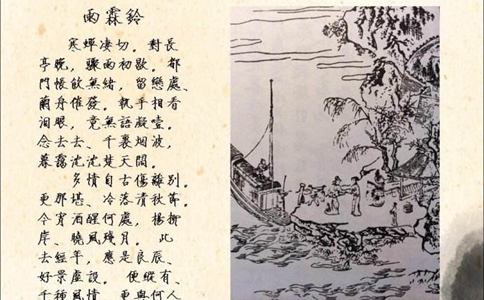 雨霖鈴
寒蟬凄切。對長
亭晚，驟雨初歇。都
門帳飲無緒，留戀處、
蘭舟催發。執手相看
淚眼，竟無語凝噎。
念去去、千裏烟波，
暮靄沈沈楚天闊。
多情自古傷離別。
更那堪、冷落清秋節。
今宵酒醒何處，楊柳
岸、曉風殘月。此
去經年，應是良辰、
好景虛設。便縱有、
千種風情，更與何人